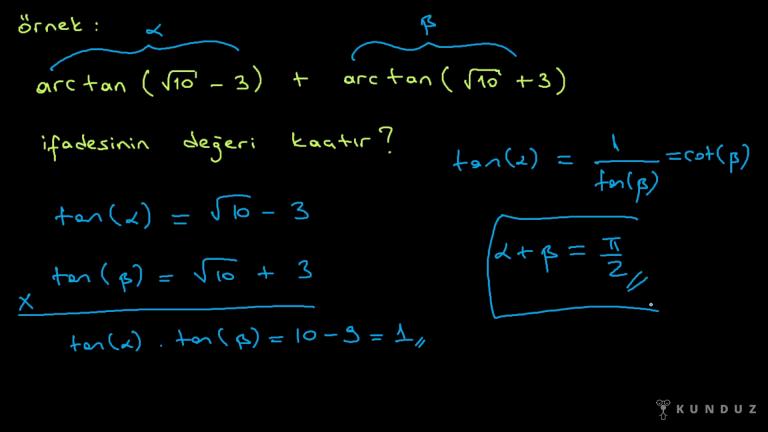 örnek :
α β
arctan (√10 - 3) + arctan (√10 + 3)
ifadesinin değeri kaçtır?
tan(α) = 1/tan(β) = cot(β)
tan(α) = √10 - 3
tan(β) = √10 + 3
x
tan(α) . tan(β) = 10 - 9 = 1
α + β = π/2
KUNDUZ